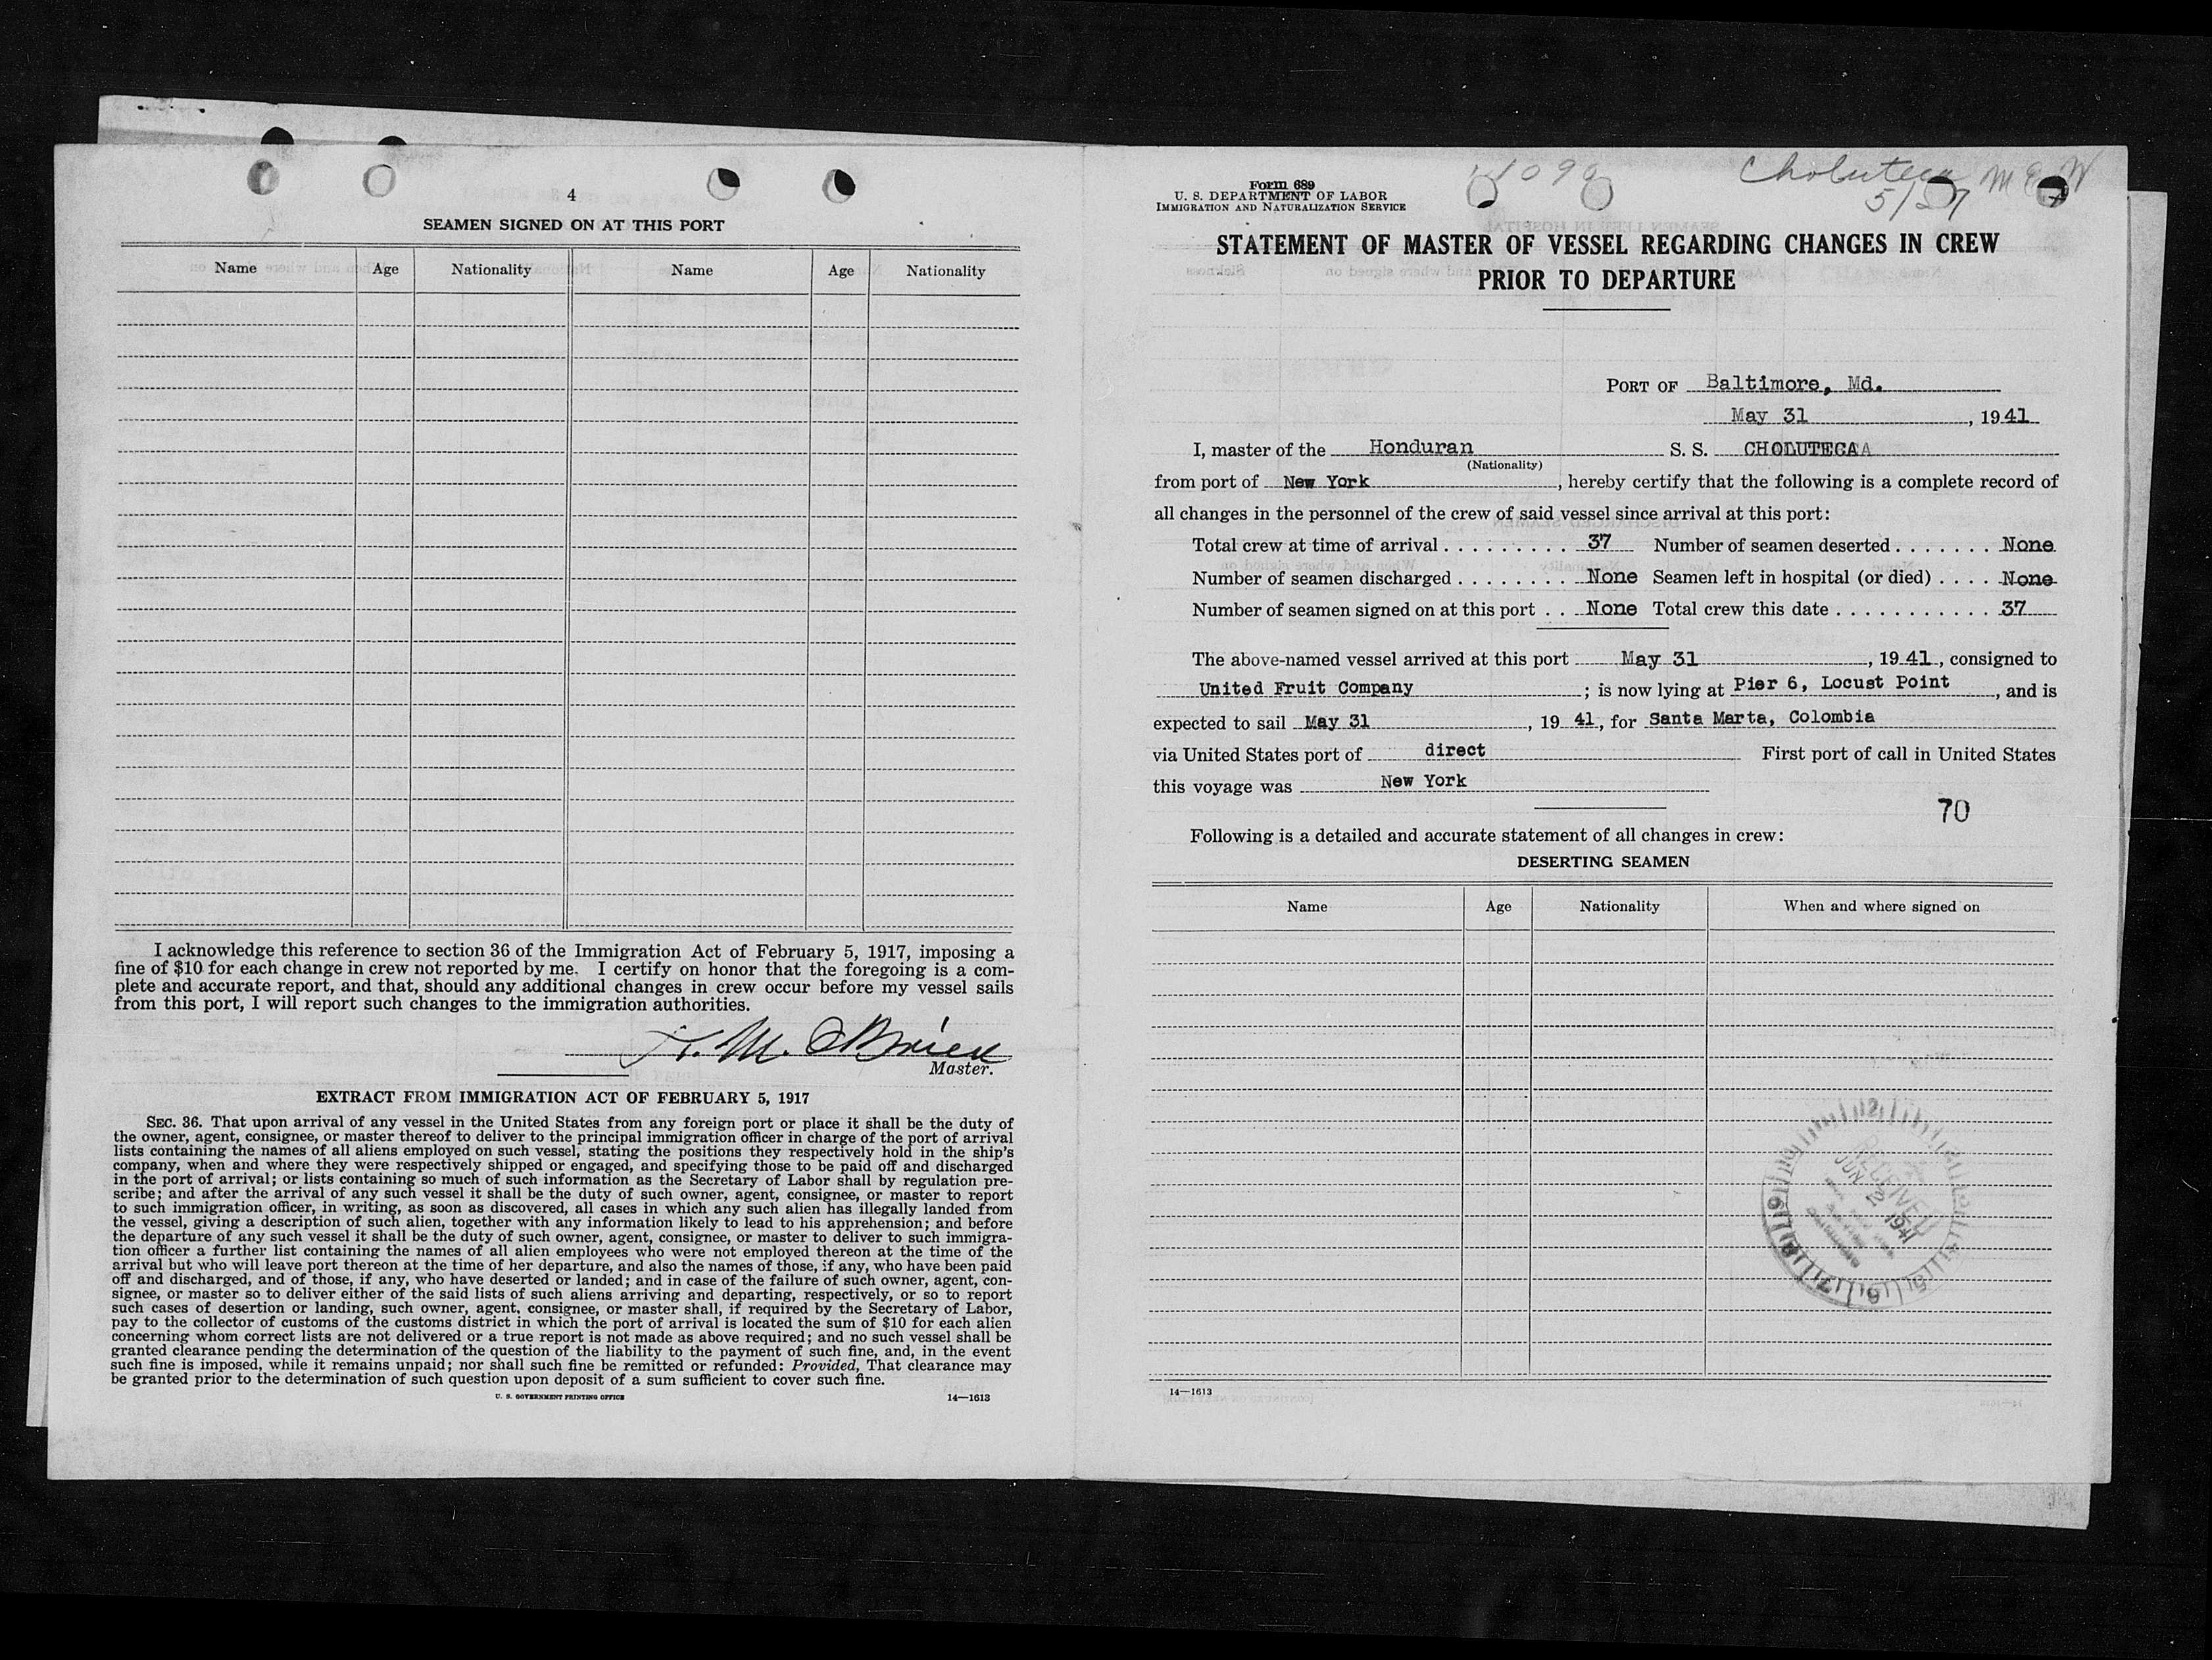 4
SEAMEN SIGNED ON AT THIS PORT
Name Age Nationality Name Age Nationality
I acknowledge this reference to section 36 of the Immigration Act of February 5, 1917, imposing a
fine of $10 for each change in crew not reported by me. I certify on honor that the foregoing is a com-
plete and accurate report, and that, should any additional changes in crew occur before my vessel sails
from this port, I will report such changes to the immigration authorities.
M. O'Brien
Master.
EXTRACT FROM IMMIGRATION ACT OF FEBRUARY 5, 1917
SEC. 36. That upon arrival of any vessel in the United States from any foreign port or place it shall be the duty of
the owner, agent, consignee, or master thereof to deliver to the principal immigration officer in charge of the port of arrival
lists containing the names of all aliens employed on such vessel, stating the positions they respectively hold in the ship's
company, when and where they were respectively shipped or engaged, and specifying those to be paid off and discharged
in the port of arrival; or lists containing so much of such information as the Secretary of Labor shall by regulation pre-
scribe; and after the arrival of any such vessel it shall be the duty of such owner, agent, consignee, or master to report
to such immigration officer, in writing, as soon as discovered, all cases in which any such alien has illegally landed from
the vessel, giving a description of such alien, together with any information likely to lead to his apprehension; and before
the departure of any such vessel it shall be the duty of such owner, agent, consignee, or master to deliver to such immigra-
tion officer a further list containing the names of all alien employees who were not employed thereon at the time of the
arrival but who will leave port thereon at the time of her departure, and also the names of those, if any, who have been paid
off and discharged, and of those, if any, who have deserted or landed; and in case of the failure of such owner, agent, con-
signee, or master so to deliver either of the said lists of such aliens arriving and departing, respectively, or so to report
such cases of desertion or landing, such owner, agent, consignee, or master shall, if required by the Secretary of Labor,
pay to the collector of customs of the customs district in which the port of arrival is located the sum of $10 for each alien
concerning whom correct lists are not delivered or a true report is not made as above required; and no such vessel shall be
granted clearance pending the determination of the question of the liability to the payment of such fine, and, in the event
such fine is imposed, while it remains unpaid; nor shall such fine be remitted or refunded: Provided, That clearance may
be granted prior to the determination of such question upon deposit of a sum sufficient to cover such fine.
U. S. GOVERNMENT PRINTING OFFICE 14—1613
Choluteca
Form 689
U. S. DEPARTMENT OF LABOR
IMMIGRATION AND NATURALIZATION SERVICE
STATEMENT OF MASTER OF VESSEL REGARDING CHANGES IN CREW
PRIOR TO DEPARTURE
PORT OF Baltimore, Md.
May 31, 1941
I, master of the Honduran S. S. CHOLUTECA
(Nationality)
from port of New York, hereby certify that the following is a complete record of
all changes in the personnel of the crew of said vessel since arrival at this port:
Total crew at time of arrival . . . . . . . . . 37 Number of seamen deserted . . . . . . . None
Number of seamen discharged . . . . . . . . None Seamen left in hospital (or died) . . . . None
Number of seamen signed on at this port . . None Total crew this date . . . . . . . . . . . 37
The above-named vessel arrived at this port May 31, 1941, consigned to
United Fruit Company; is now lying at Pier 6, Locust Point, and is
expected to sail May 31, 1941, for Santa Marta, Colombia
via United States port of direct First port of call in United States
this voyage was New York
70
Following is a detailed and accurate statement of all changes in crew:
DESERTING SEAMEN
Name Age Nationality When and where signed on
RECEIVED
JUN 2 1941
14—1613